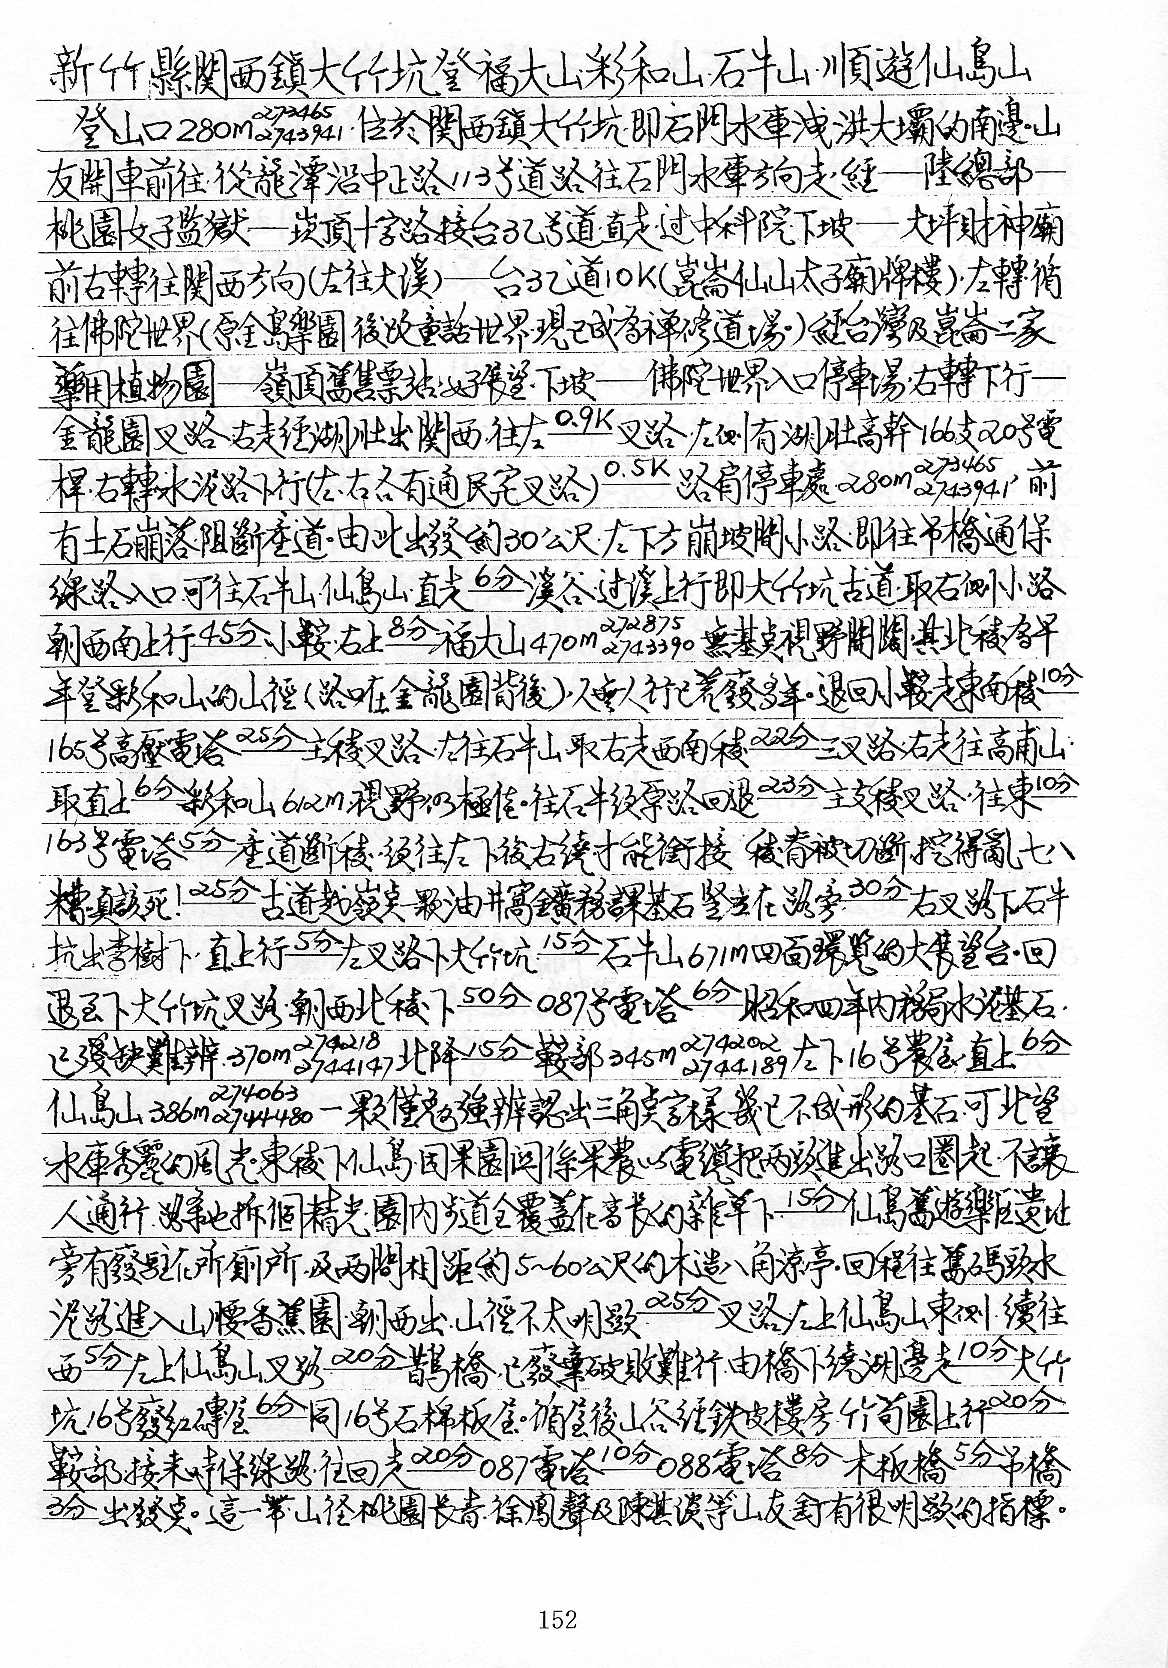 新竹縣関西鎮大竹坑登福大山.彩和山.石牛山.順遊仙島山
登山口280m 273465 2743941.位於関西鎮大竹坑.即石門水庫洩洪大壩的南邊.山
友開車前往.從龍潭沿中正路113号道路往石門水庫方向走.經——陸總部—
桃園女子監獄——崁頂十字路接台3乙号道直走.过中科院下坡——大坪財神廟
前右轉往関西方向(左往大溪)——台3乙道10K(崑崙仙山太子廟牌樓).左轉循
往佛陀世界(原金鳥樂園後改童話世界.現已成為禅修道場.)經台灣及崑崙二家
藥用植物園——嶺頂舊售票站.好展望.下坡——佛陀世界入口停車場.右轉下行—
金龍園叉路.右走經湖肚出関西.往左0.9K叉路.左側有湖肚高幹166支20号電
桿.右轉水泥路下行(左.右各有通民宅叉路)0.5K路肩停車處.280m 273465 2743941.前
有土石崩落阻斷產道.由此出發約30公尺.左下方崩坡間小路.即往吊橋通保
線路入口可往石牛山.仙島山.直走6分溪谷.过溪上行即大竹坑古道.取右側小路
朝西南上行45分小鞍.右上8分福大山470m 272875 2743390無基点視野開闊.其北稜為早
年登彩和山的山徑(路口在金龍園背後).久無人行已荒廢多年.退回小鞍走東南稜10分
165号高壓電塔25分主稜叉路.左往石牛山取右走西南稜22分三叉路.右走往高甫山.
取直上6分彩和山612m.視野仍極佳.往石牛须原路回退23分主支稜叉路.往東10分
163号電塔5分產道斷稜.须往左下後右繞才能銜接 稜脊被切斷.挖得亂七八
糟.真該死!25分古道越嶺点一顆油井窩金鑛務課基石豎立在路旁.30分右叉路下石牛
坑出李樹下.直上行5分左叉路下大竹坑.15分石牛山671m四面環覽的大展望台.回
退至下大竹坑叉路.朝西北稜下50分087号電塔6分昭和四年内務局水泥基石.
已殘缺難辨.370m 274218 2744147北降15分鞍部345m 274202 2744189左下16号農屋.直上6分
仙島山386m 274063 2744480一顆僅勉強辨認出三角点字樣幾已不成形的基石.可北望
水庫秀麗的風光.東稜下仙島.因果園関係果農以電纜把两頭進出路口圈起.不讓
人通行.路条也拆個精光.園内步道全覆蓋在高長的雜草下.15分仙島舊遊樂區遺址
旁有廢駐在所.廁所.及两間相距約5~60公尺的木造八角涼亭.回程往舊碼頭水
泥路進入山腰香蕉園.朝西出.山徑不太明顯.25分叉路.左上仙島山東側.續往
西5分左上仙島山叉路20分鵲橋.已廢棄破敗難行.由橋下繞湖邊走10分大竹
坑16号廢紅磚屋6分同16号石棉板屋.循屋後山谷經鉄皮樓房.竹筍園上行20分
鞍部.接来時保線路.往回走20分087電塔10分088電塔8分木板橋5分吊橋
3分出發点。這一帶山徑桃園長青.徐鳳聲及陳其漢等山友釘有很明顯的指標。
152